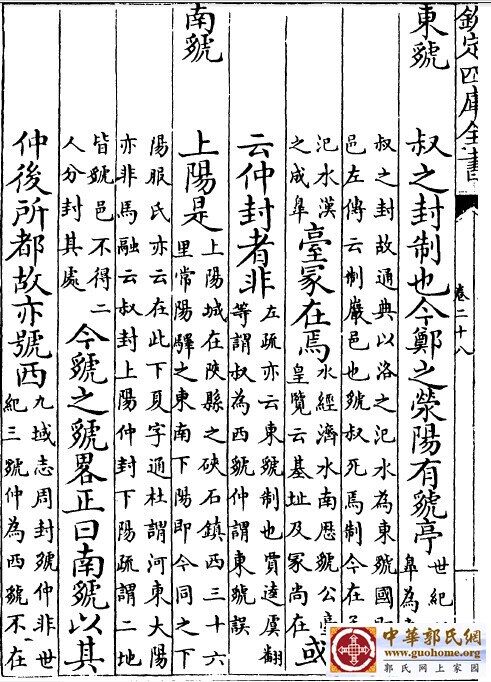 欽定四庫全書
卷二十八
東虢
叔之封制也今鄭之滎陽有虢亭
世紀
皋為
叔之封故通典以洛之汜水為東虢國
邑左傳云制巖邑也虢叔死焉制今在
汜水漢
之成皋
臺冢在焉
水經濟水南歷虢公
皇覽云基址及冢尚在
或
云仲封者非
左疏亦云東虢制也賈逵虞翻
等謂叔為西虢仲謂東虢誤
南虢
上陽是
上陽城在陝縣之硤石鎮西三十六
里常陽驛之東南下陽即今同之下
陽服氏亦云在此下夏字通杜謂河東大陽
亦非馬融云叔封上陽仲封下陽疏謂二地
皆虢邑不得二
人分封其處
今虢之虢畧正曰南虢以其
仲後所都故亦號西
九域志周封虢仲非世
紀三虢仲為西虢不在
中華郭氏網
www.guohome.org
郭氏网上家园